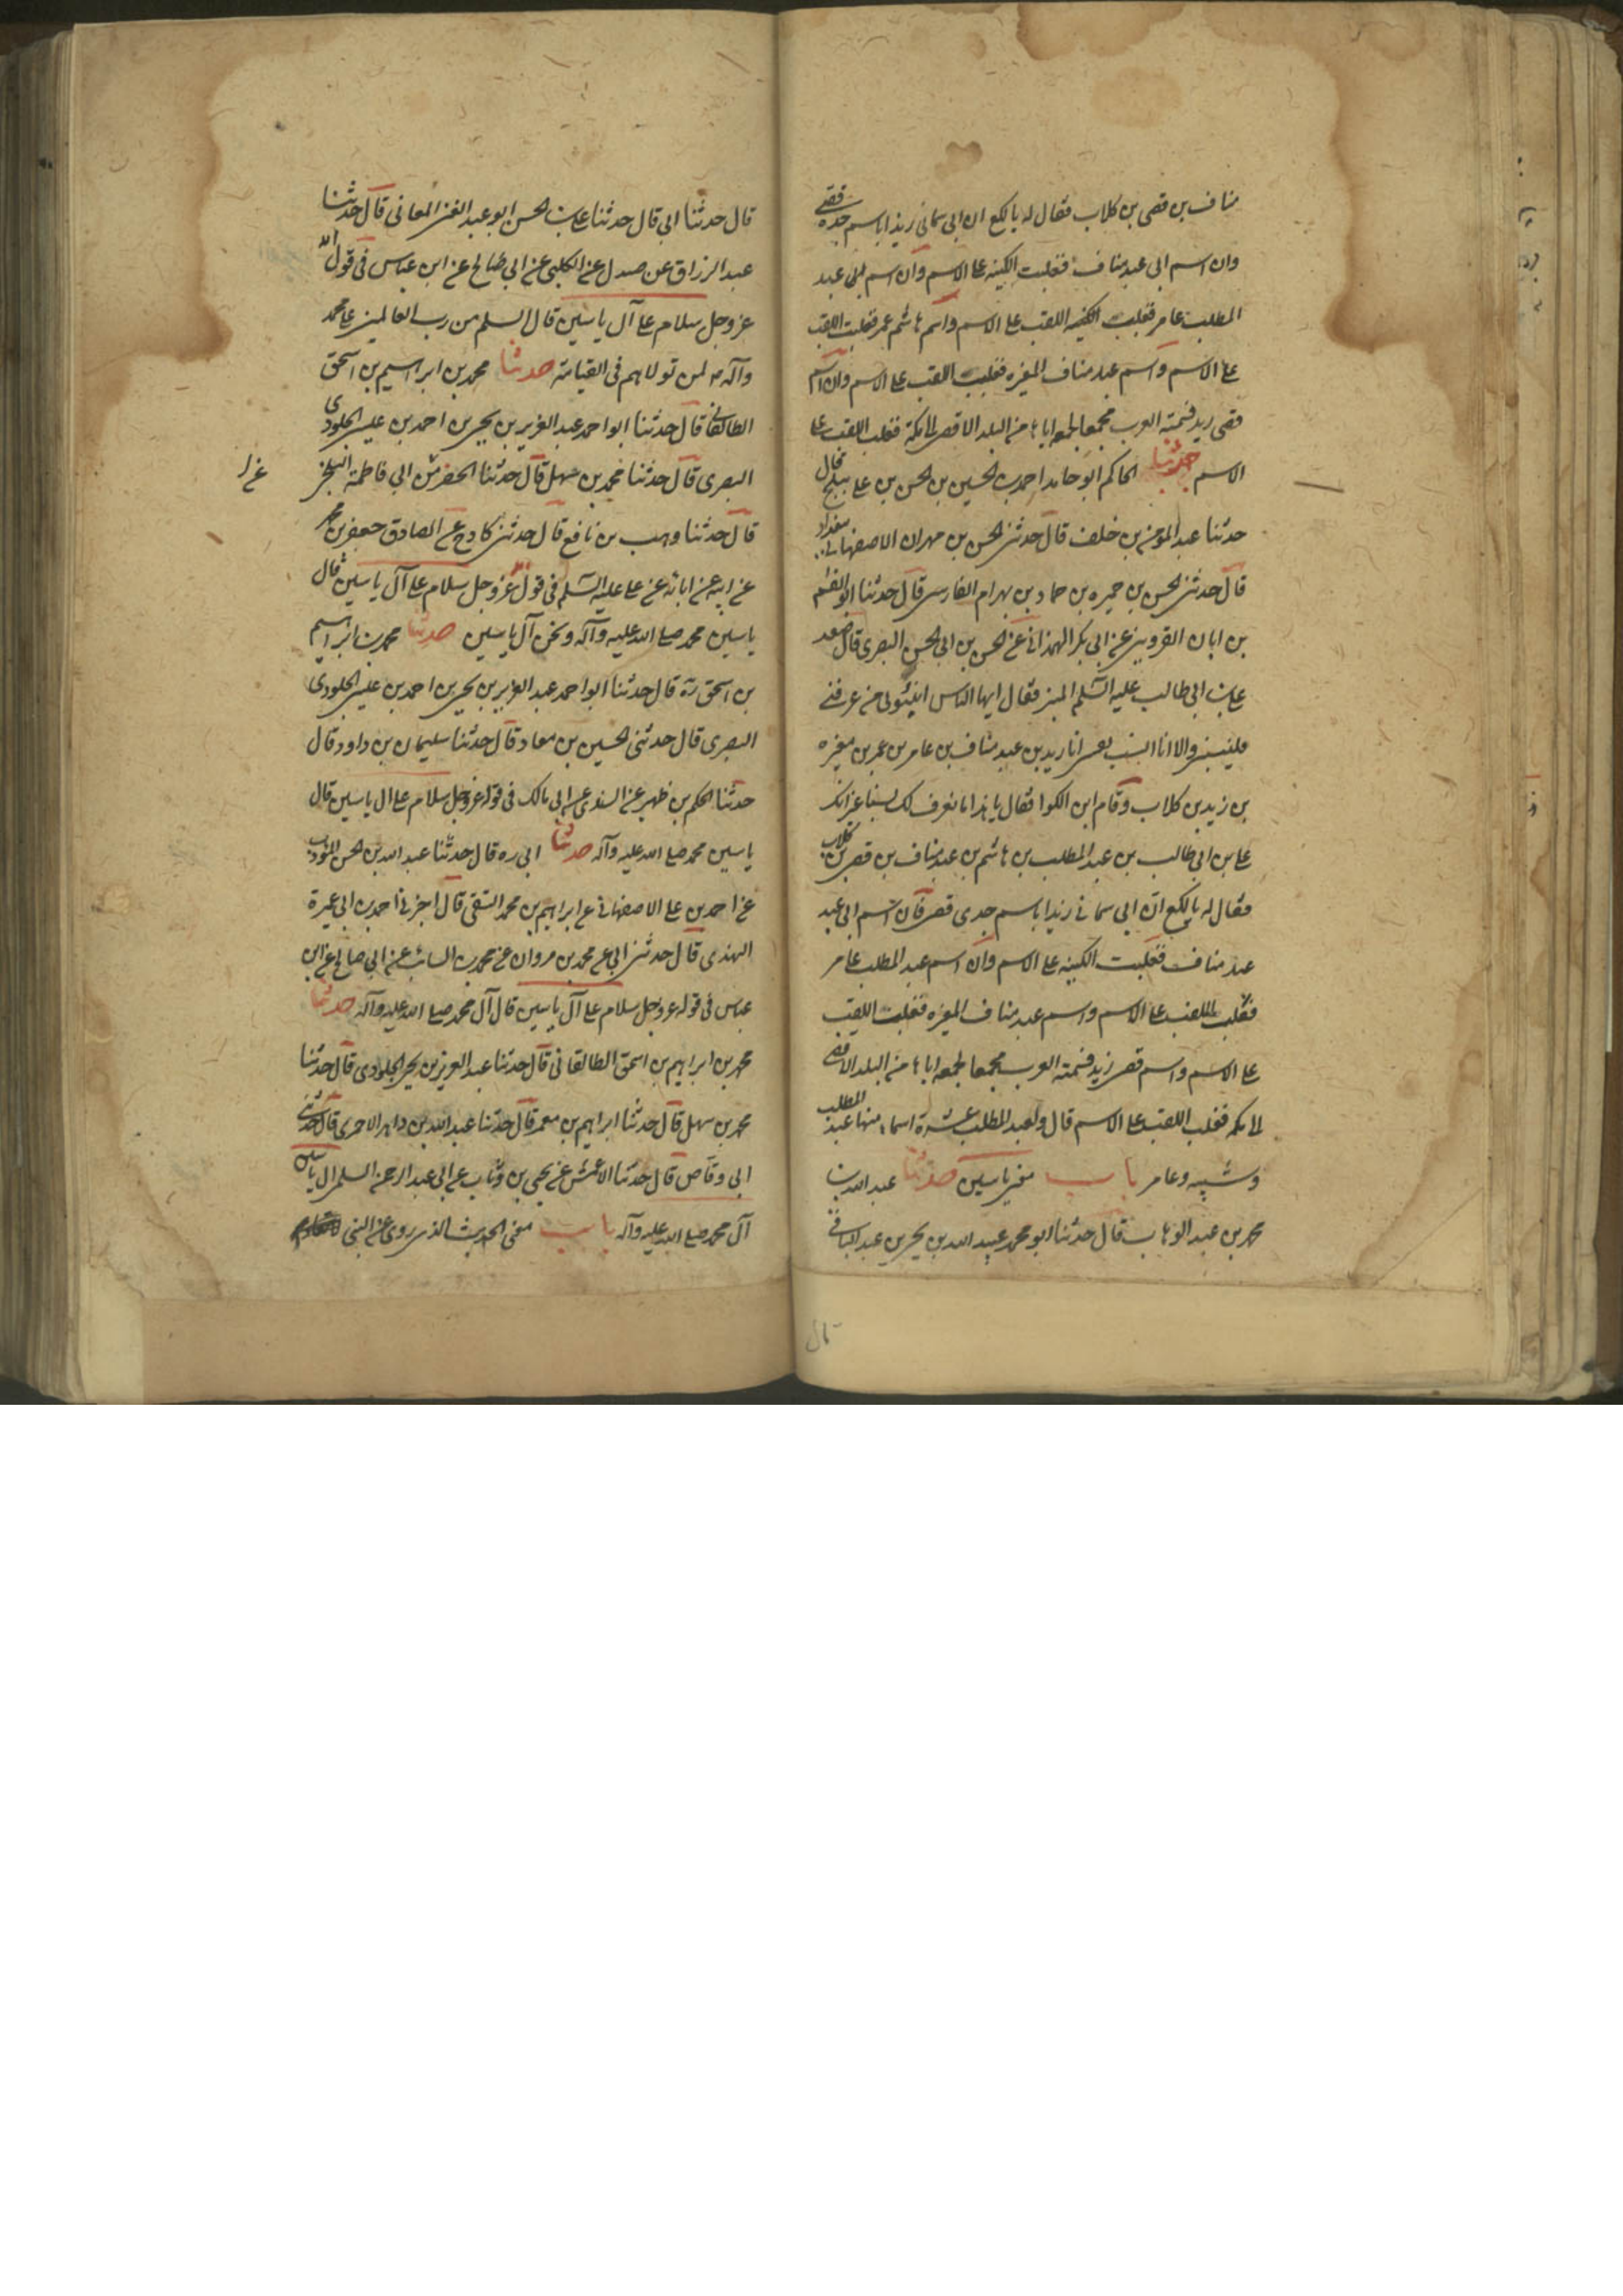 مناف بن قصی بن كلاب فقال له یا لكع ان ابی سمانی زیدا باسم جده قصی
وان اسم ابی عبد مناف فغلبت الكنیه علی الاسم وان اسم عبد
المطلب عامر فغلبت اللقب علی الاسم واسم هاشم عمر فغلبت اللقب
علی الاسم واسم عبد مناف المغیره فغلبت اللقب علی الاسم وان اسم
قصی زید فسمته العرب مجمعا لجمعه ایاها من البلد الاقصی الی مكة فغلب اللقب علی
الاسم حدثنا الحاكم ابو حامد احمد بن الحسین بن الحسن بن علی ببلخ قال
حدثنا عبد المؤمن بن خلف قال حدثنی الحسن بن مهران الاصفهانی ببغداد
قال حدثنی الحسن بن حمیره بن حماد بن بهرام الفارسی قال حدثنا ابو القسم
بن ابان القزوینی عن ابی بكر الهمذانی عن الحسن بن ابی الحسن البصری قال صعد
علی بن ابی طالب علیه السلم المنبر فقال ایها الناس انسبونی من عرفنی
فلینسبنی والا انا انسب نفسی انا زید بن عبد مناف بن عامر بن عمر بن مغیره
بن زید بن كلاب وقام ابن الكوا فقال یا هذا ما نعرف لك نسبا غیر انك
علی بن ابی طالب بن عبد المطلب بن هاشم بن عبد مناف بن قصی بن كلاب
فقال له یا لكع ان ابی سمانی زیدا باسم جدی قصی فان اسم ابی عبد
عبد مناف فغلبت الكنیه علی الاسم وان اسم عبد المطلب عامر
فغلب اللقب علی الاسم واسم عبد مناف المغیره فغلبت اللقب
علی الاسم واسم قصی زید فسمته العرب مجمعا لجمعه ایاها من البلد الاقصی
الی مكه فغلب اللقب علی الاسم قال ولعبد المطلب عشرة اسماء منها عبد المطلب
وشیبه وعامر باب معنی یاسین حدثنا عبد الله بن
محمد بن عبد الوهاب قال حدثنا ابو محمد عبید الله بن یحیی بن عبد الباقی
قال
قال حدثنا ابی قال حدثنا علی بن الحسن ابو عبد الغنی المعانی قال حدثنا
عبد الرزاق عن مندل عن الكلبی عن ابی صالح عن ابن عباس فی قول الله
عز وجل سلام علی آل یاسین قال السلم من رب العالمین علی محمد
وآله لمن تولاهم فی القیامة حدثنا محمد بن ابراهیم بن اسحق
الطالقانی قال حدثنا ابو احمد عبد العزیز بن یحیی بن احمد بن عیسی الجلودی
البصری قال حدثنا محمد بن سهل قال حدثنا الخضر بن ابی فاطمة البلخی
قال حدثنا وهب بن نافع قال حدثنی كادح عن الصادق جعفر بن محمد
عن ابیه عن ابائه عن علی علیه السلم فی قوله عز وجل سلام علی آل یاسین قال
یاسین محمد صلی الله علیه وآله ونحن آل یاسین حدثنا محمد بن ابراهیم
بن اسحق ره قال حدثنا ابو احمد عبد العزیز بن یحیی بن احمد بن عیسی الجلودی
البصری قال حدثنی الحسین بن معاد قال حدثنا سلیمان بن داود قال
حدثنا الحكم بن ظهیر عن السندی عن ابی مالك فی قوله عز وجل سلام علی ال یاسین قال
یاسین محمد صلی الله علیه وآله حدثنا ابی ره قال حدثنا عبد الله بن الحسن المؤدب
عن احمد بن علی الاصفهانی عن ابراهیم بن محمد الثقفی قال اخبرنی احمد بن ابی عمیرة
النهدی قال حدثنی ابی عن محمد بن مروان عن محمد بن السائب عن ابی صالح عن ابن
عباس فی قوله عز وجل سلام علی آل یاسین قال آل محمد صلی الله علیه وآله حدثنا
محمد بن ابراهیم بن اسحق الطالقانی قال حدثنا عبد العزیز بن یحیی الجلودی قال حدثنا
محمد بن سهل قال حدثنا ابراهیم بن معمر قال حدثنا عبد الله بن داهر الاحمری قال حدثنی
ابی وقاص قال حدثنا الاعمش عن یحیی بن وثاب عن ابی عبد الرحمن السلمی ال یاسین
آل محمد صلی الله علیه وآله باب معنی الحدیث الذی روی عن النبی